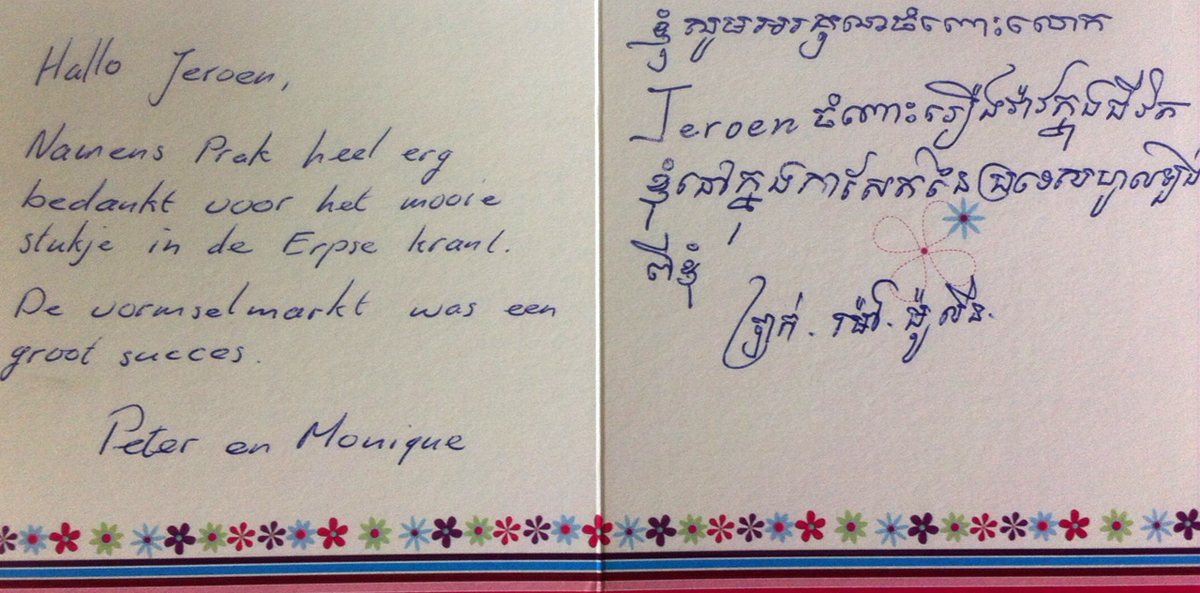 Hallo Jeroen,
Namens Prak heel erg
bedankt voor het mooie
stukje in de Erpse krant.
De vormselmarkt was een
groot succes.
Peter en Monique
ខ្ញុំសូមអរគុណចំពោះលោក
Jeroen ចំពោះរឿងរ៉ាវក្នុងជីវិត
ខ្ញុំនៅក្នុងកាសែតនៃប្រទេសហូលឡង់
ពីខ្ញុំ
ប្រាក់.